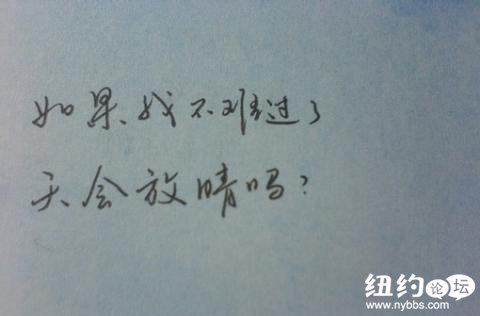 如果我不难过了
天会放晴吗?
纽约论坛
www.nybbs.com